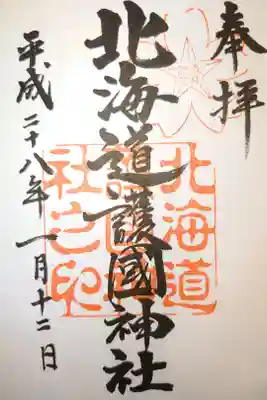 奉拝
北海道護國神社
北海道護國神社之印
平成二十八年一月十二日